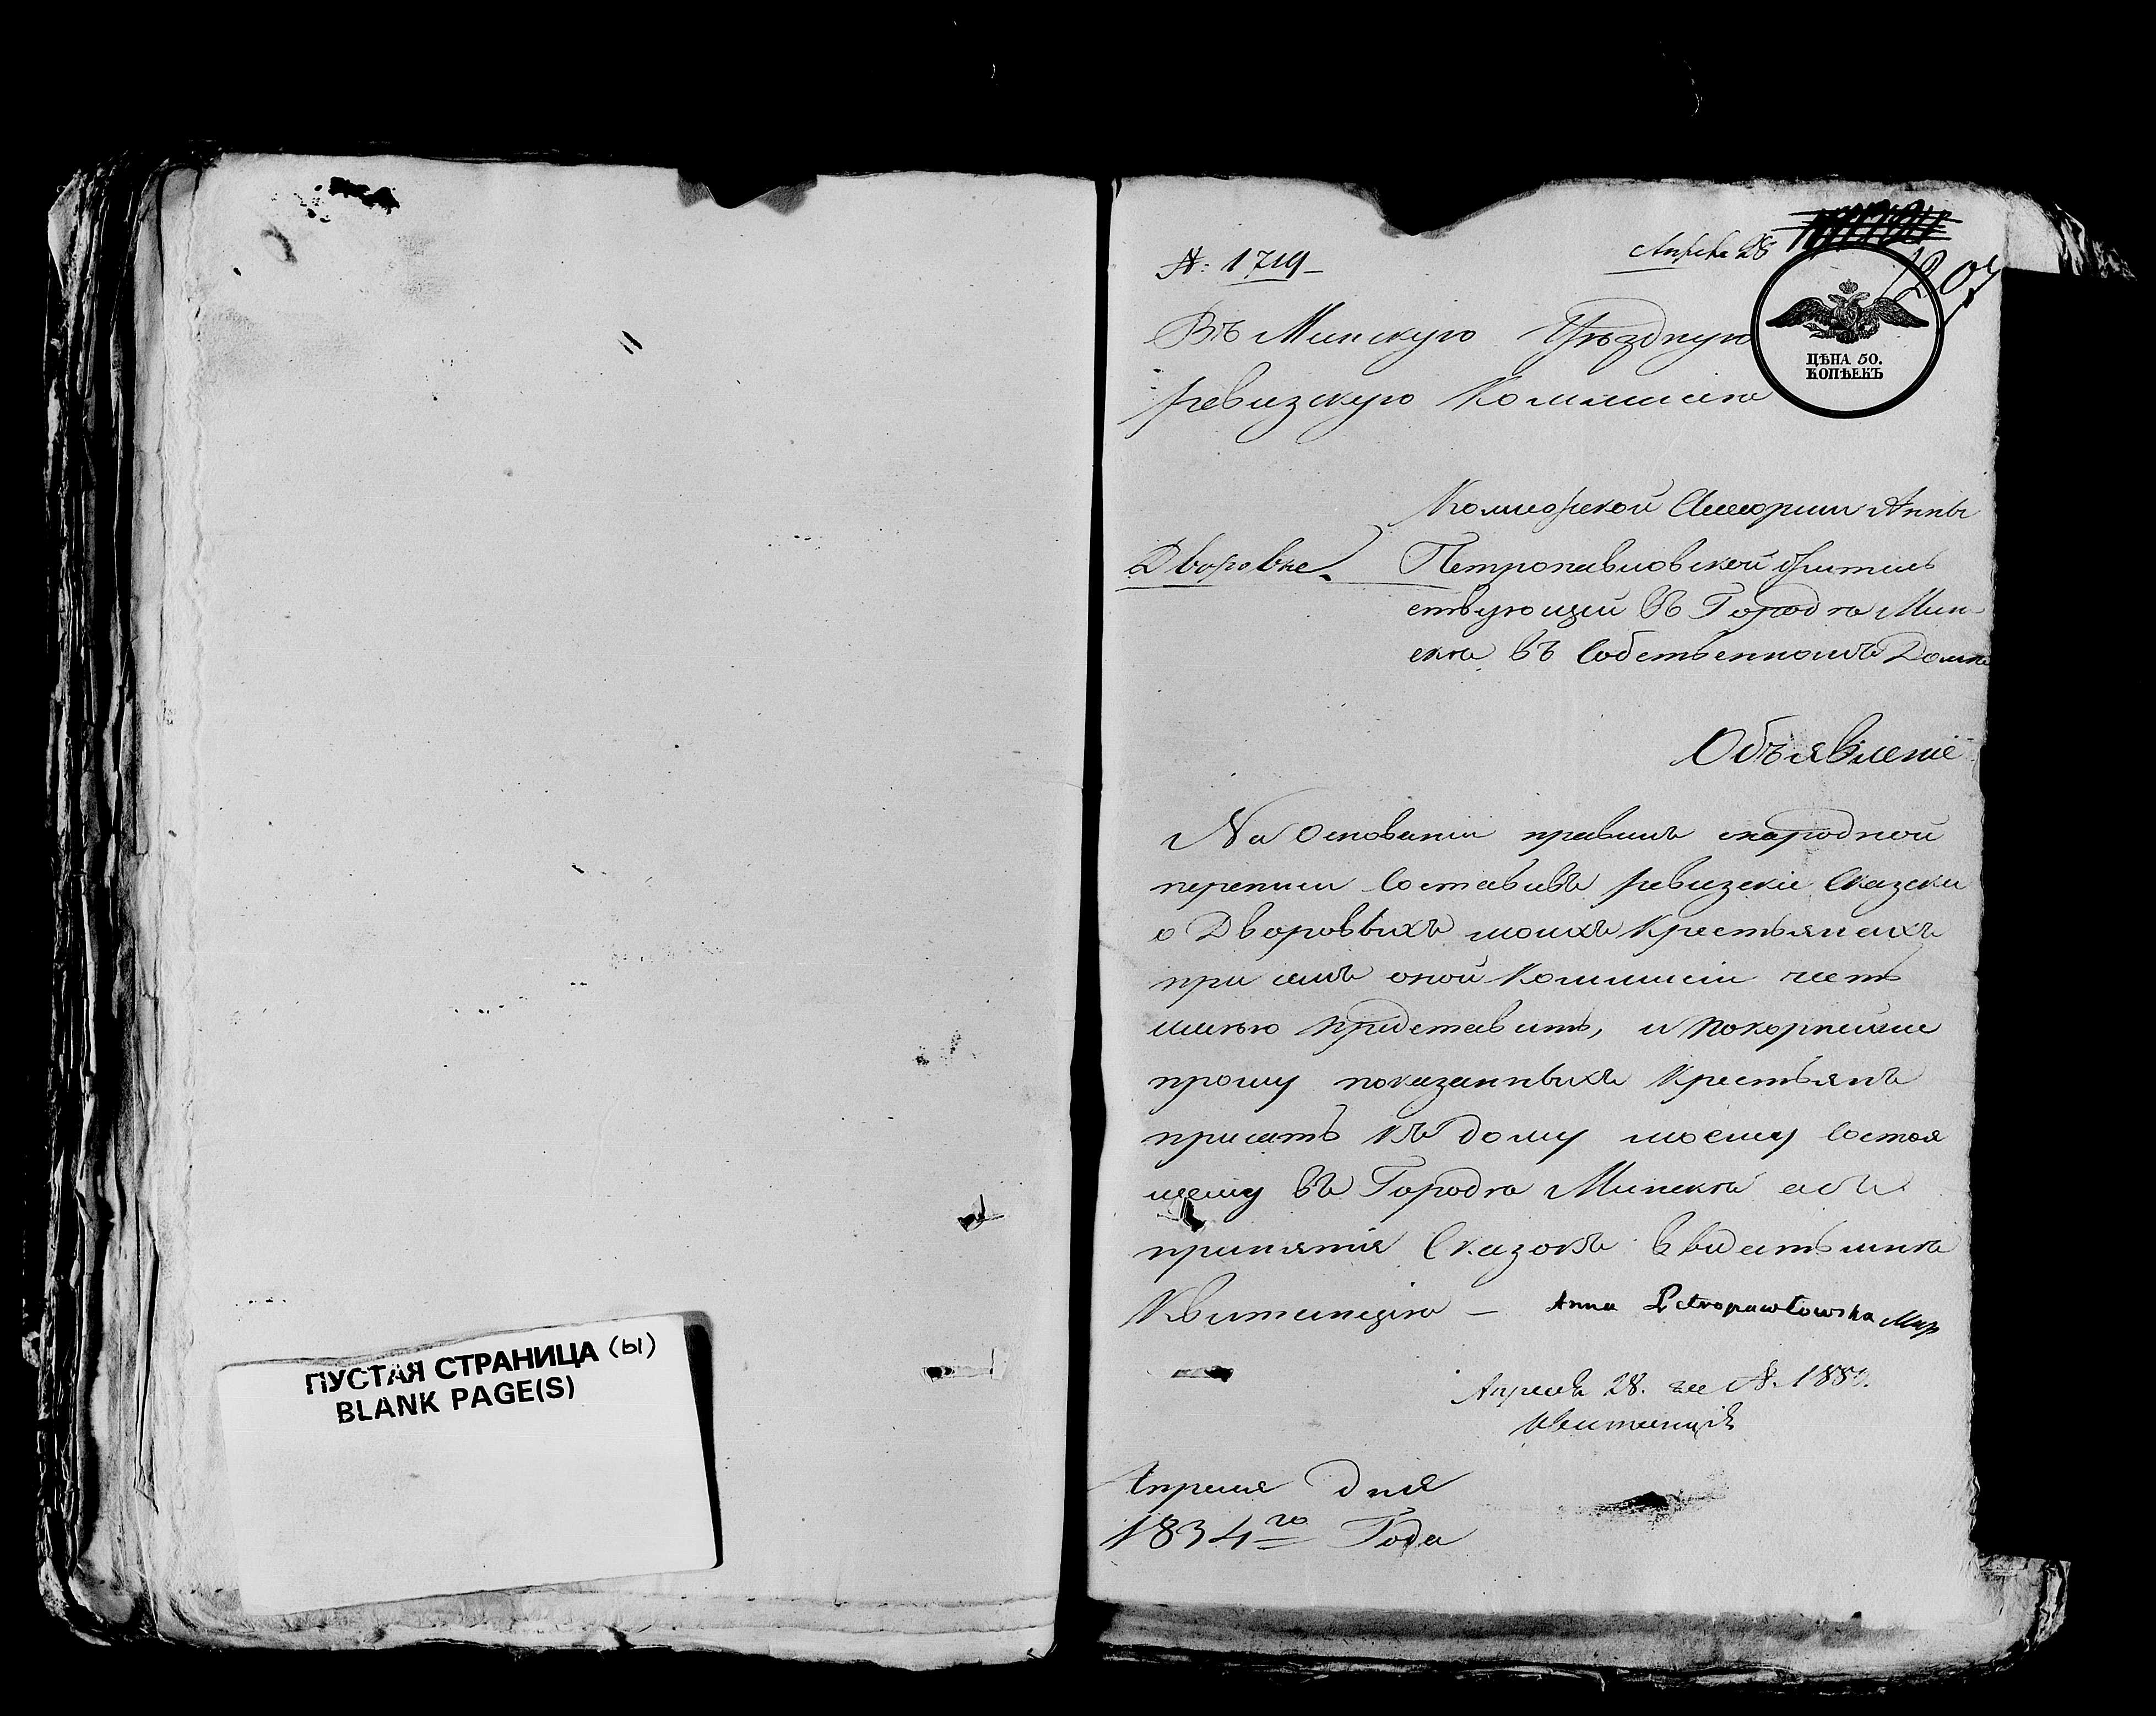 ПУСТАЯ СТРАНИЦА (ы)
BLANK PAGE(S)
№: 1719
Апреля 28
1207
ЦѢНА 50.
КОПѢЕКЪ
Въ Минскую Уѣздную
ревизскую Коммисію
Дворовые
Анны
Петропавловской жител
ствующей въ Городѣ Мин
скѣ въ собственномъ Домѣ
Объявленіе
На Основаніи правилъ народной
переписи Составивъ ревизскіе Сказски
о Дворовыхъ моихъ Крестьянехъ
при семъ оной Коммисіи чест
имѣю представить, и покорнейше
прошу показанныхъ Крестьянъ
присать къ дому моему состоя
щему въ Городѣ Минскѣ
принятіи Сказокъ выдать мнѣ
Квитанцію — Anna Petropawłowska
Апреля 28.
квитанція
Апреля Дня
1834го Года